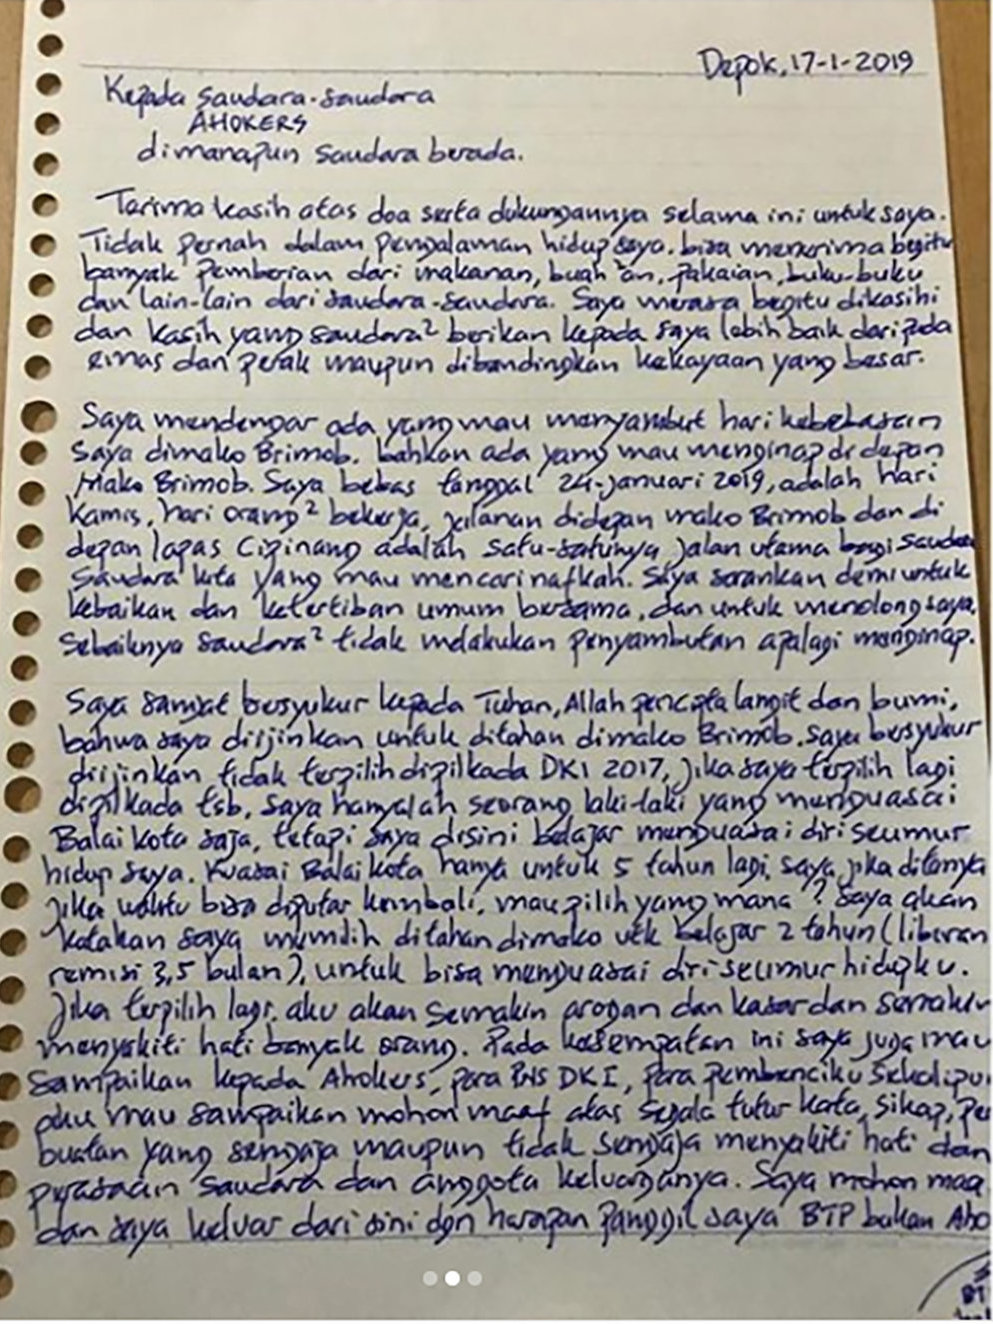 Depok, 17-1-2019
Kepada saudara-saudara
AHOKERS
dimanapun saudara berada.
Terima kasih atas doa serta dukungannya selama ini untuk saya.
Tidak pernah dalam pengalaman hidup saya. bisa menerima begitu
banyak pemberian dari makanan, buah'an, pakaian, buku-buku
dan lain-lain dari saudara-saudara. Saya merasa begitu dikasihi
dan kasih yang saudara² berikan kepada saya lebih baik daripada
emas dan perak maupun dibandingkan kekayaan yang besar.
Saya mendengar ada yang mau menyambut hari kebebasan
saya dimako Brimob. bahkan ada yang mau menginap di depan
Mako Brimob. Saya bebas tanggal 24-januari 2019, adalah hari
Kamis, hari orang² bekerja, jalanan didepan mako Brimob dan di
depan lapas Cipinang adalah satu-satunya jalan utama bagi saudara
saudara kita yang mau mencari nafkah. Saya sarankan demi untuk
kebaikan dan ketertiban umum bersama, dan untuk menolong saya,
Sebaiknya saudara² tidak melakukan penyambutan apalagi menginap.
Saya sangat bersyukur kepada Tuhan, Allah pencipta langit dan bumi,
bahwa saya diijinkan untuk ditahan dimako Brimob. saya bersyukur
diijinkan tidak terpilih dipilkada DKI 2017, jika saya terpilih lagi
dipilkada tsb, saya hanyalah seorang laki-laki yang menguasai
Balai kota saja, tetapi saya disini belajar menguasai diri seumur
hidup saya. Kuasai Balai kota hanya untuk 5 tahun lagi, saya jika ditanya
jika waktu bisa diputar kembali, mau pilih yang mana? Saya akan
katakan saya memilih ditahan dimako utk belajar 2 tahun (liburan
remisi 3,5 bulan), untuk bisa menguasai diri seumur hidupku.
Jika terpilih lagi, aku akan semakin arogan dan kasar dan semakin
menyakiti hati banyak orang. Pada kesempatan ini saya juga mau
sampaikan kepada Ahokers, para PNS DKI, para pembenciku sekalipun
aku mau sampaikan mohon maaf atas segala tutur kata, sikap, per
buatan yang sengaja maupun tidak sengaja menyakiti hati dan
perasaan saudara dan anggota keluarganya. Saya mohon maa
dan saya keluar dari sini dgn harapan panggil saya BTP bukan Aho